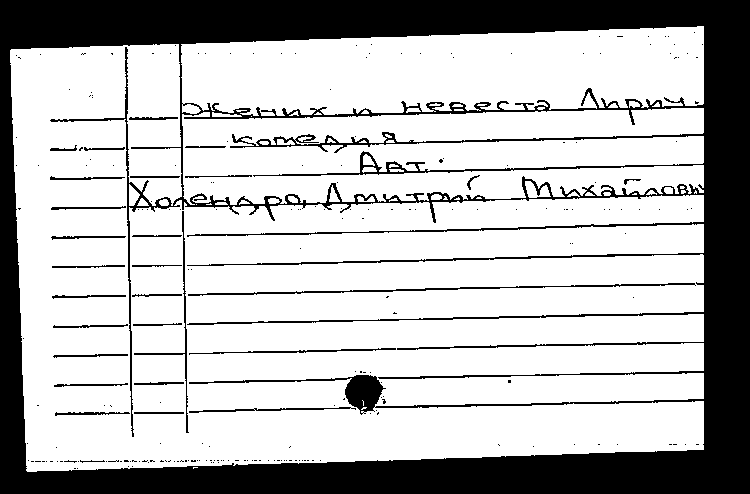 Жених и невеста Лирич.
комедия.
Авт.
Холендро, Дмитрий Михайлови